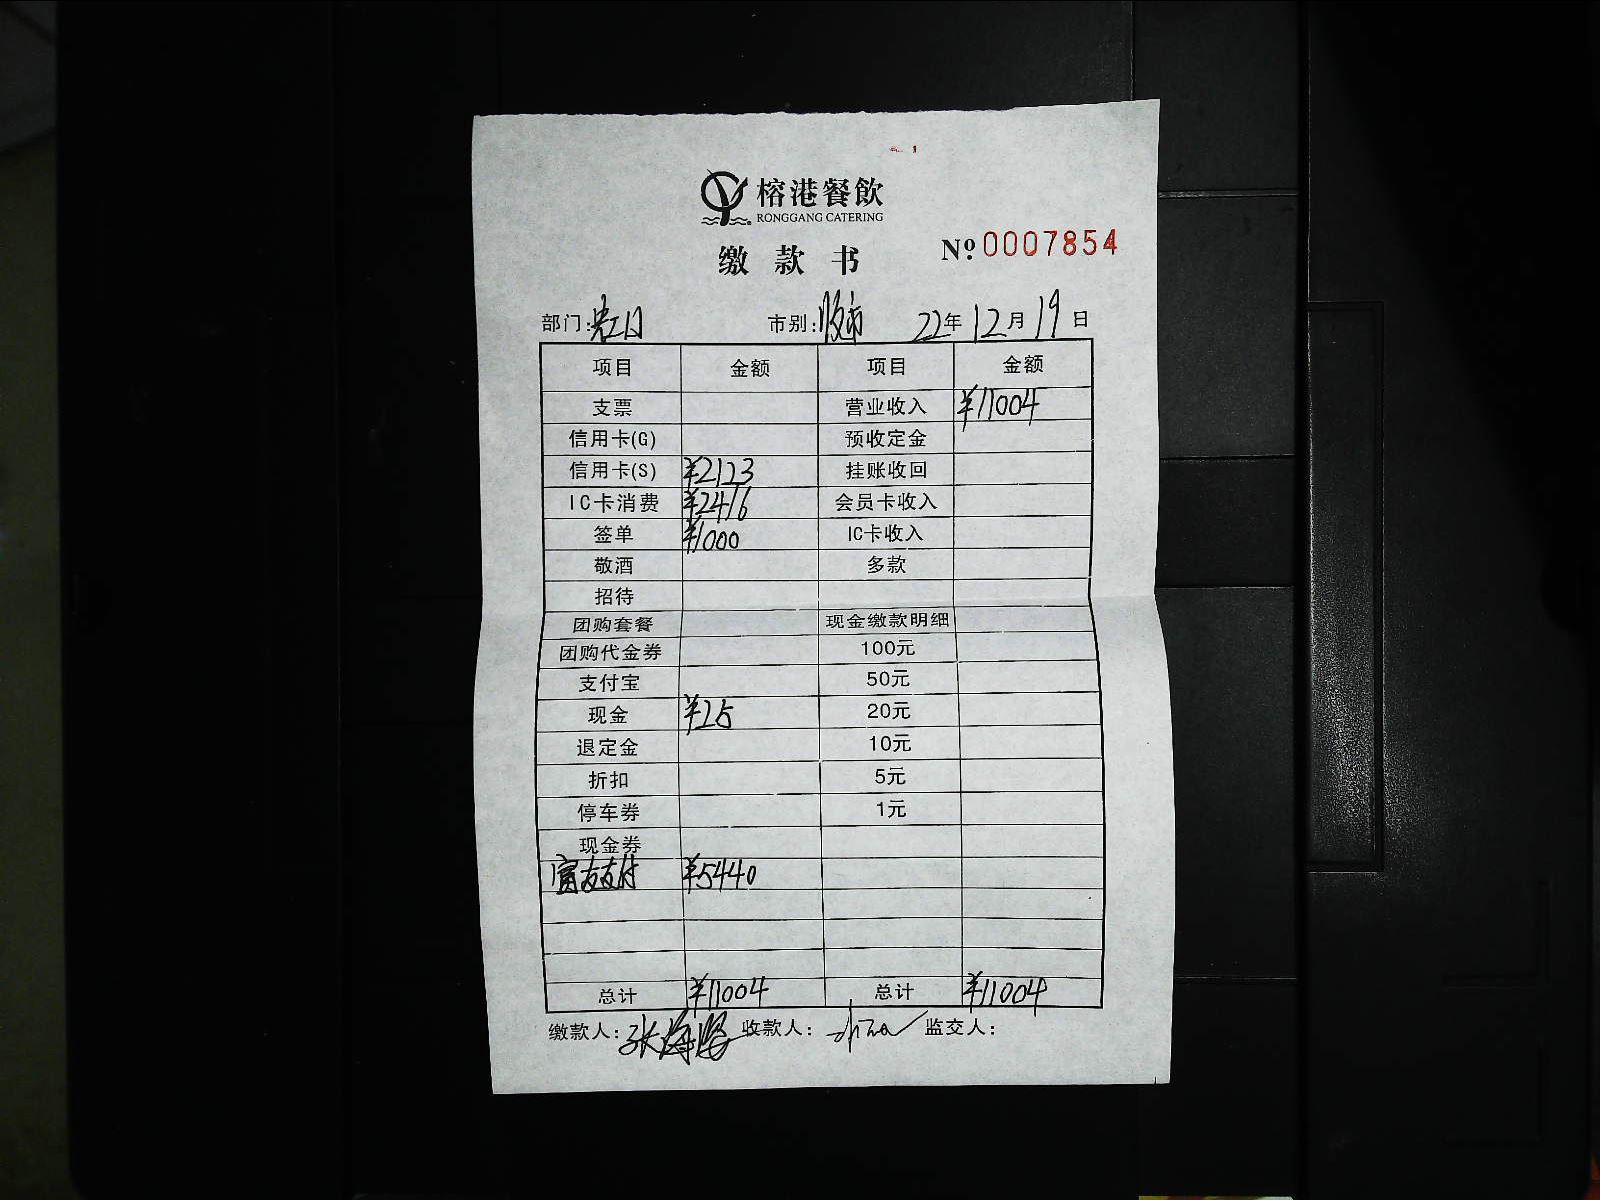 榕港餐飲
RONGGANG CATERING
缴款书
Nº 0007854
部门: 虹口 市别: 晚市 22年12月19日
项目 金额 项目 金额
支票 营业收入 ¥11004
信用卡(G) 预收定金
信用卡(S) ¥2123 挂账收回
IC卡消费 ¥2416 会员卡收入
签单 ¥1000 IC卡收入
敬酒 多款
招待
团购套餐 现金缴款明细
团购代金券 100元
支付宝 50元
现金 ¥25 20元
退定金 10元
折扣 5元
停车券 1元
现金券
富友支付 ¥5440
总计 ¥11004 总计 ¥11004
缴款人: 张海 收款人: 监交人: